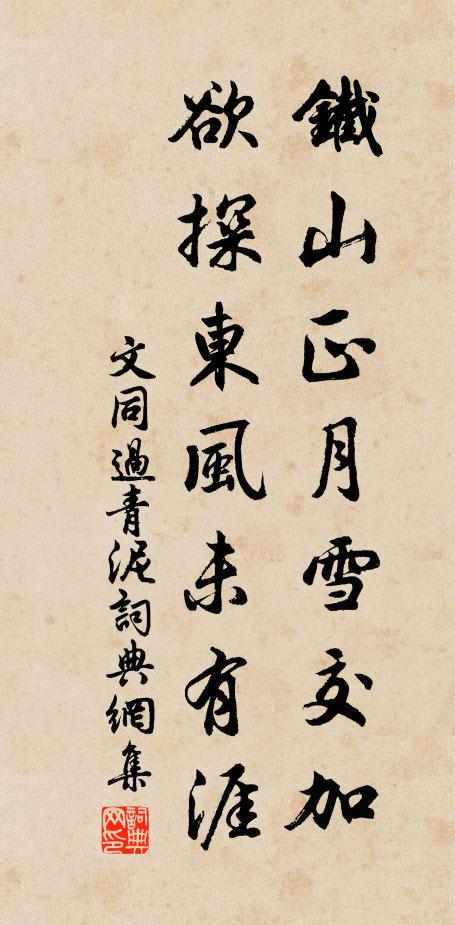 鐵山正月雪交加
欲探東風未有涯
文同過青泥詞典網集
詞典网印